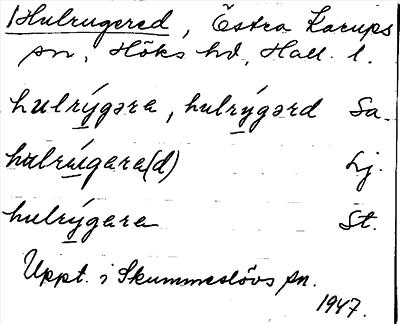 Hulrugered, Östra Karups
sn, Höks hd, Hall. l.
hulrýgəra, hulrýgərd Sa.
hulrúgara(d) Lj.
hulrýgara St.
Uppt. i Skummeslövs sn.
1947.